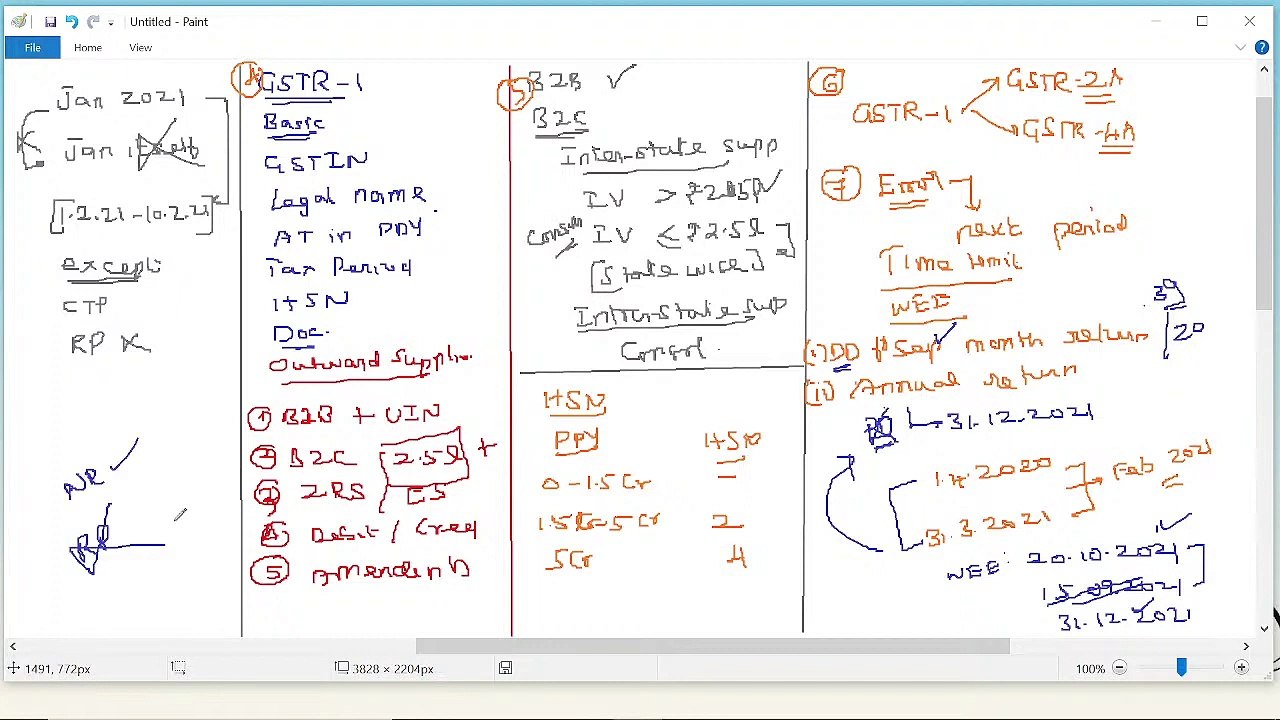 Untitled - Paint
File
Home
View
Jan 2021
Jan itself
[1.2.21 - 10.2.21]
except
CTP
RP X
NR ✓
4
GSTR-1
Basic
GSTIN
Legal name
AT in PPY
Tax Period
HSN
Doc.
Outward Supplies
① B2B + UIN
② B2C 2.5l +
③ ZRS / ES
④ Debit /
⑤
5
B2B ✓
B2C
Inter-state supp
IV > ₹2.5l ✓
IV ≤ ₹2.5l
[State wise]
Intra-state sup
Consol.
HSN
PPY HSN
0 - 1.5 Cr -
1.5 Cr - 5 Cr 2
5 Cr 4
6
GSTR-1
GSTR-2A
GSTR-4A
7
Error
next period
Time limit
WEE
39
20
(i) DD of Sep month return
(ii) Annual return
31.12.2021
1.4.2020
31.3.2021
Feb 2021
WEE: 20.10.2021
31.12.2021
1491, 772px
3828 × 2204px
100%